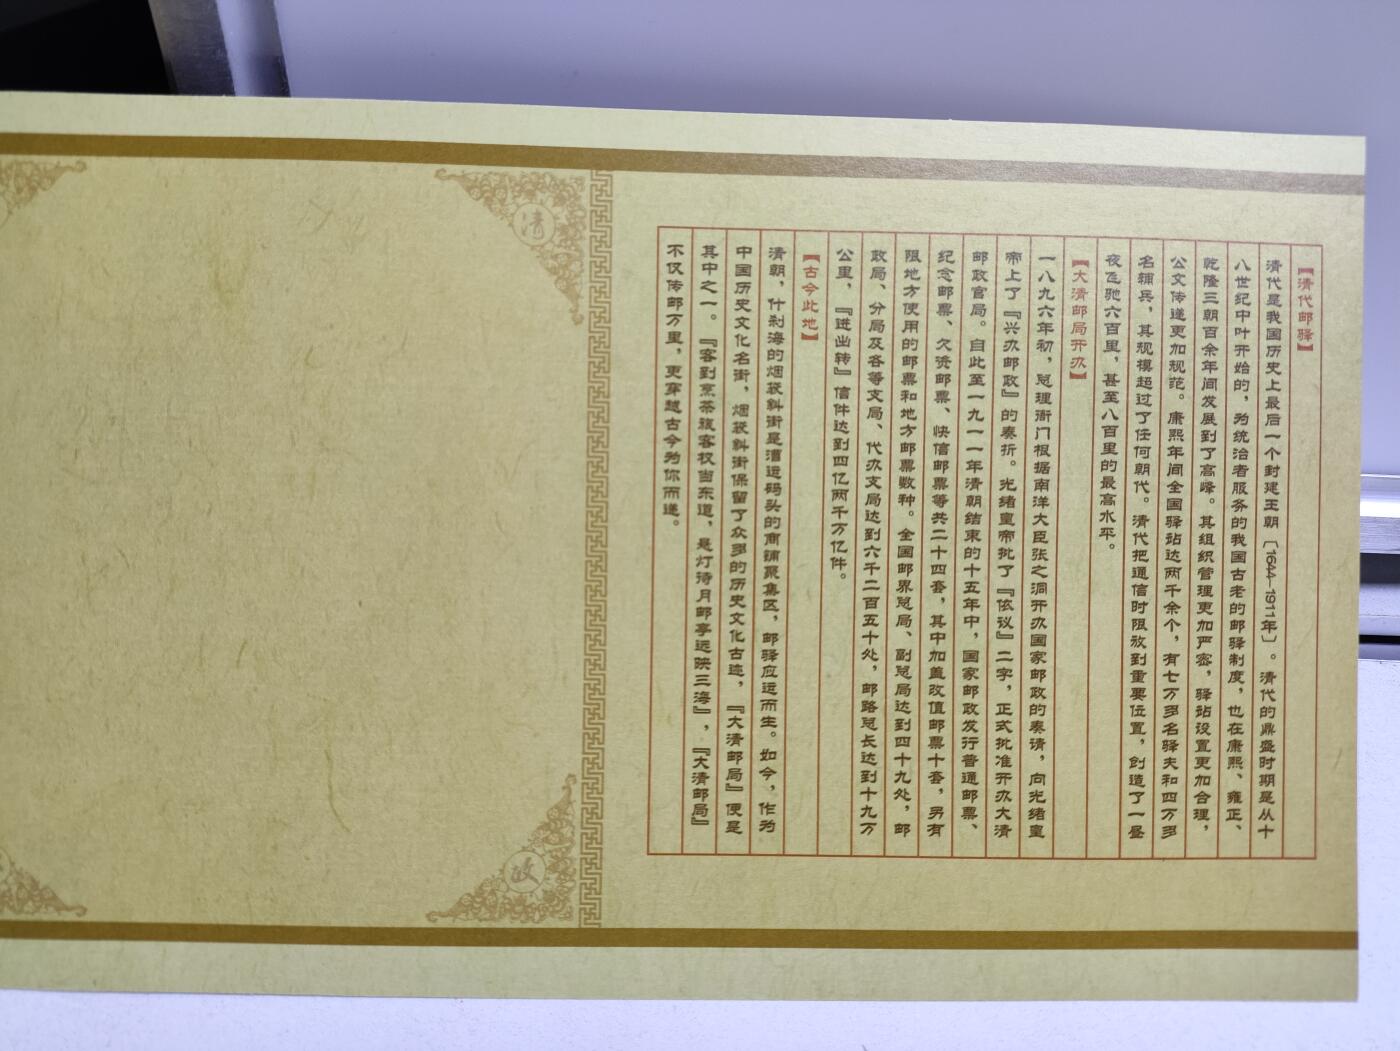 【清代邮驿】
清代是我国历史上最后一个封建王朝〔1644—1911年〕。清代的鼎盛时期是从十
八世纪中叶开始的，为统治者服务的我国古老的邮驿制度，也在康熙、雍正、
乾隆三朝百余年间发展到了高峰。其组织管理更加严密，驿站设置更加合理，
公文传递更加规范。康熙年间全国驿站达两千余个，有七万多名驿夫和四万多
名辅兵，其规模超过了任何朝代。清代把通信时限放到重要位置，创造了一昼
夜飞驰六百里，甚至八百里的最高水平。
【大清邮局开办】
一八九六年初，总理衙门根据南洋大臣张之洞开办国家邮政的奏请，向光绪皇
帝上了『兴办邮政』的奏折。光绪皇帝批了『依议』二字，正式批准开办大清
邮政官局。自此至一九一一年清朝结束的十五年中，国家邮政发行普通邮票、
纪念邮票、欠资邮票、快信邮票等共二十四套，其中加盖改值邮票十套，另有
限地方使用的邮票和地方邮票数种。全国邮界总局、副总局达到四十九处，邮
政局、分局及各等支局、代办支局达到六千二百五十处，邮路总长达到十九万
公里，『进出转』信件达到四亿两千万亿件。
【古今此地】
清朝，什刹海的烟袋斜街是漕运码头的商铺聚集区，邮驿应运而生。如今，作为
中国历史文化名街，烟袋斜街保留了众多的历史文化古迹，『大清邮局』便是
其中之一。『客到烹茶旅客权当东道，悬灯待月邮亭远映三海』，『大清邮局』
不仅传邮万里，更穿越古今为你而递。
清
政